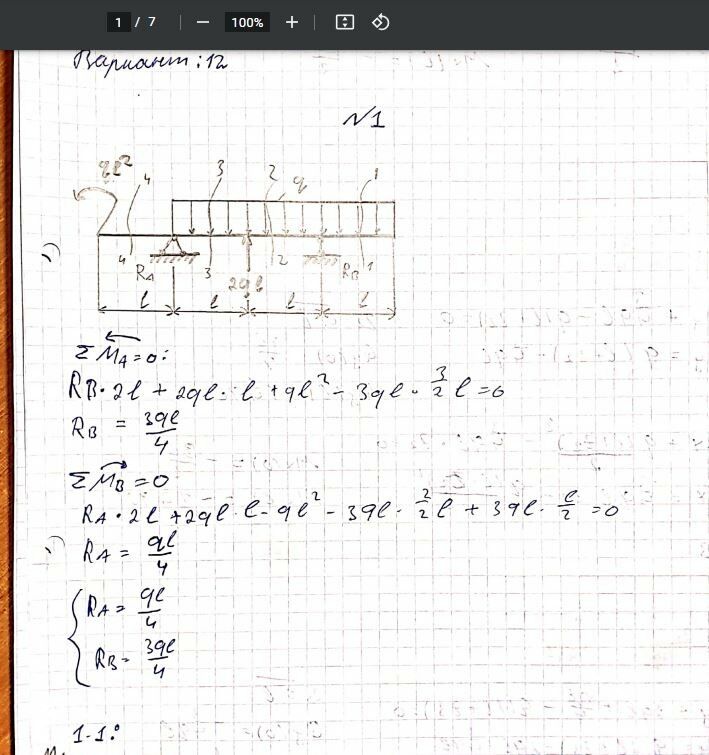 1 / 7 100%
Вариант: 12
N1
ql²
4 3 2 q 1
4 3 2 1
RA 2ql RB
l l l l
ΣMA=0:
RB·2l + 2ql·l + ql² - 3ql·3/2 l = 0
RB = 3ql/4
ΣMB=0
RA·2l + 2ql·l - ql² - 3ql·2/2 l + 3ql·l/2 = 0
RA = ql/4
RA = ql/4
RB = 3ql/4
1-1: